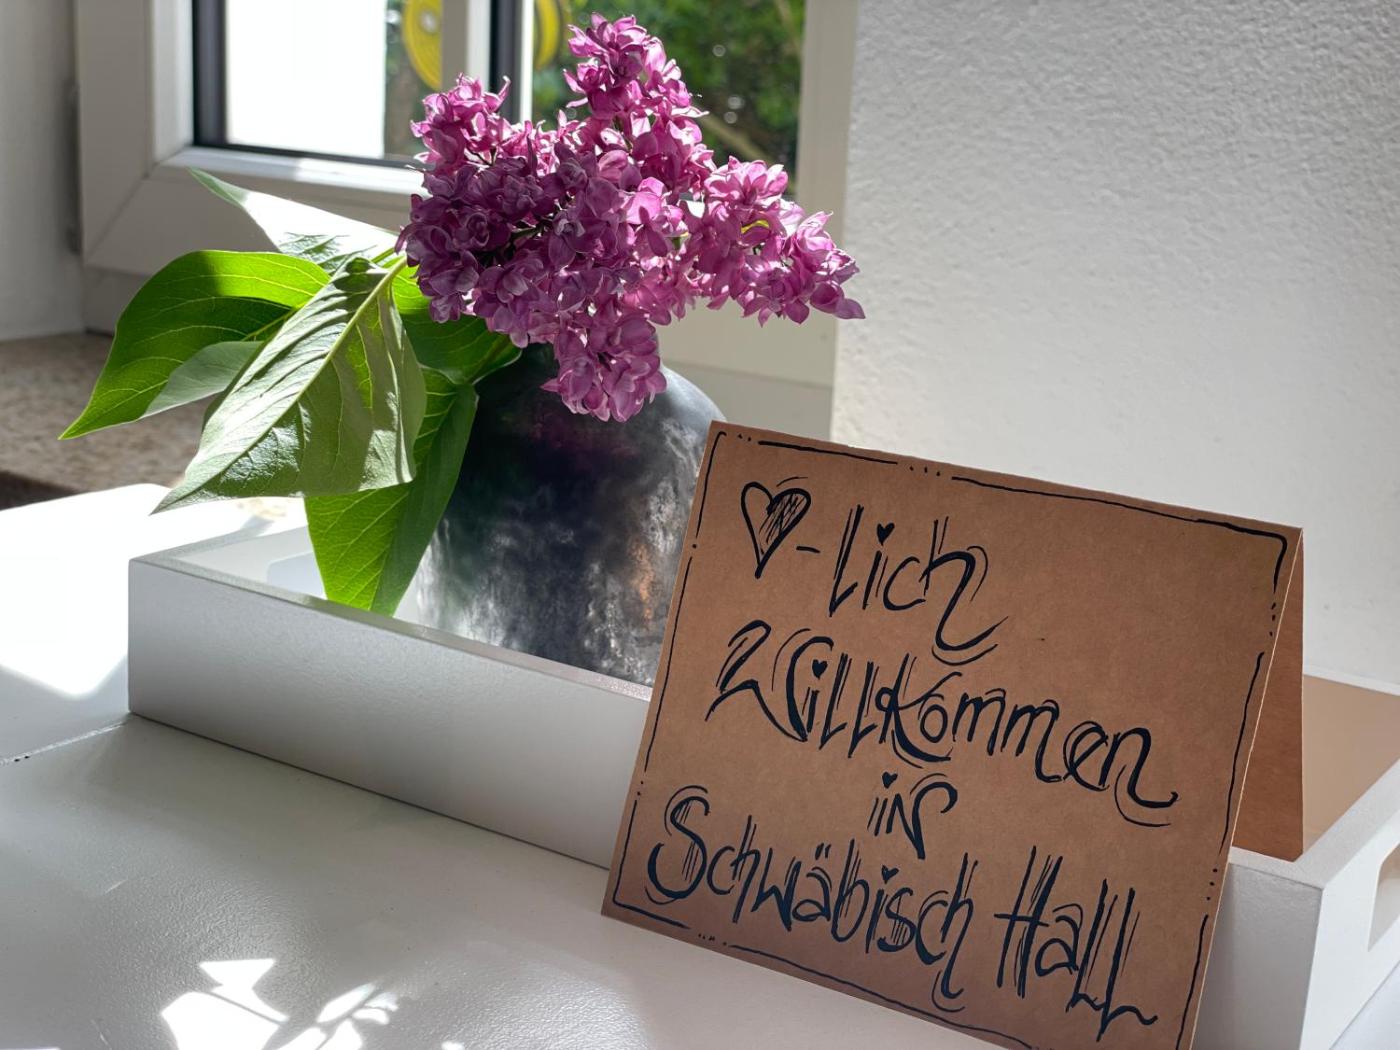 ♥-lich
Willkommen
in
Schwäbisch Hall